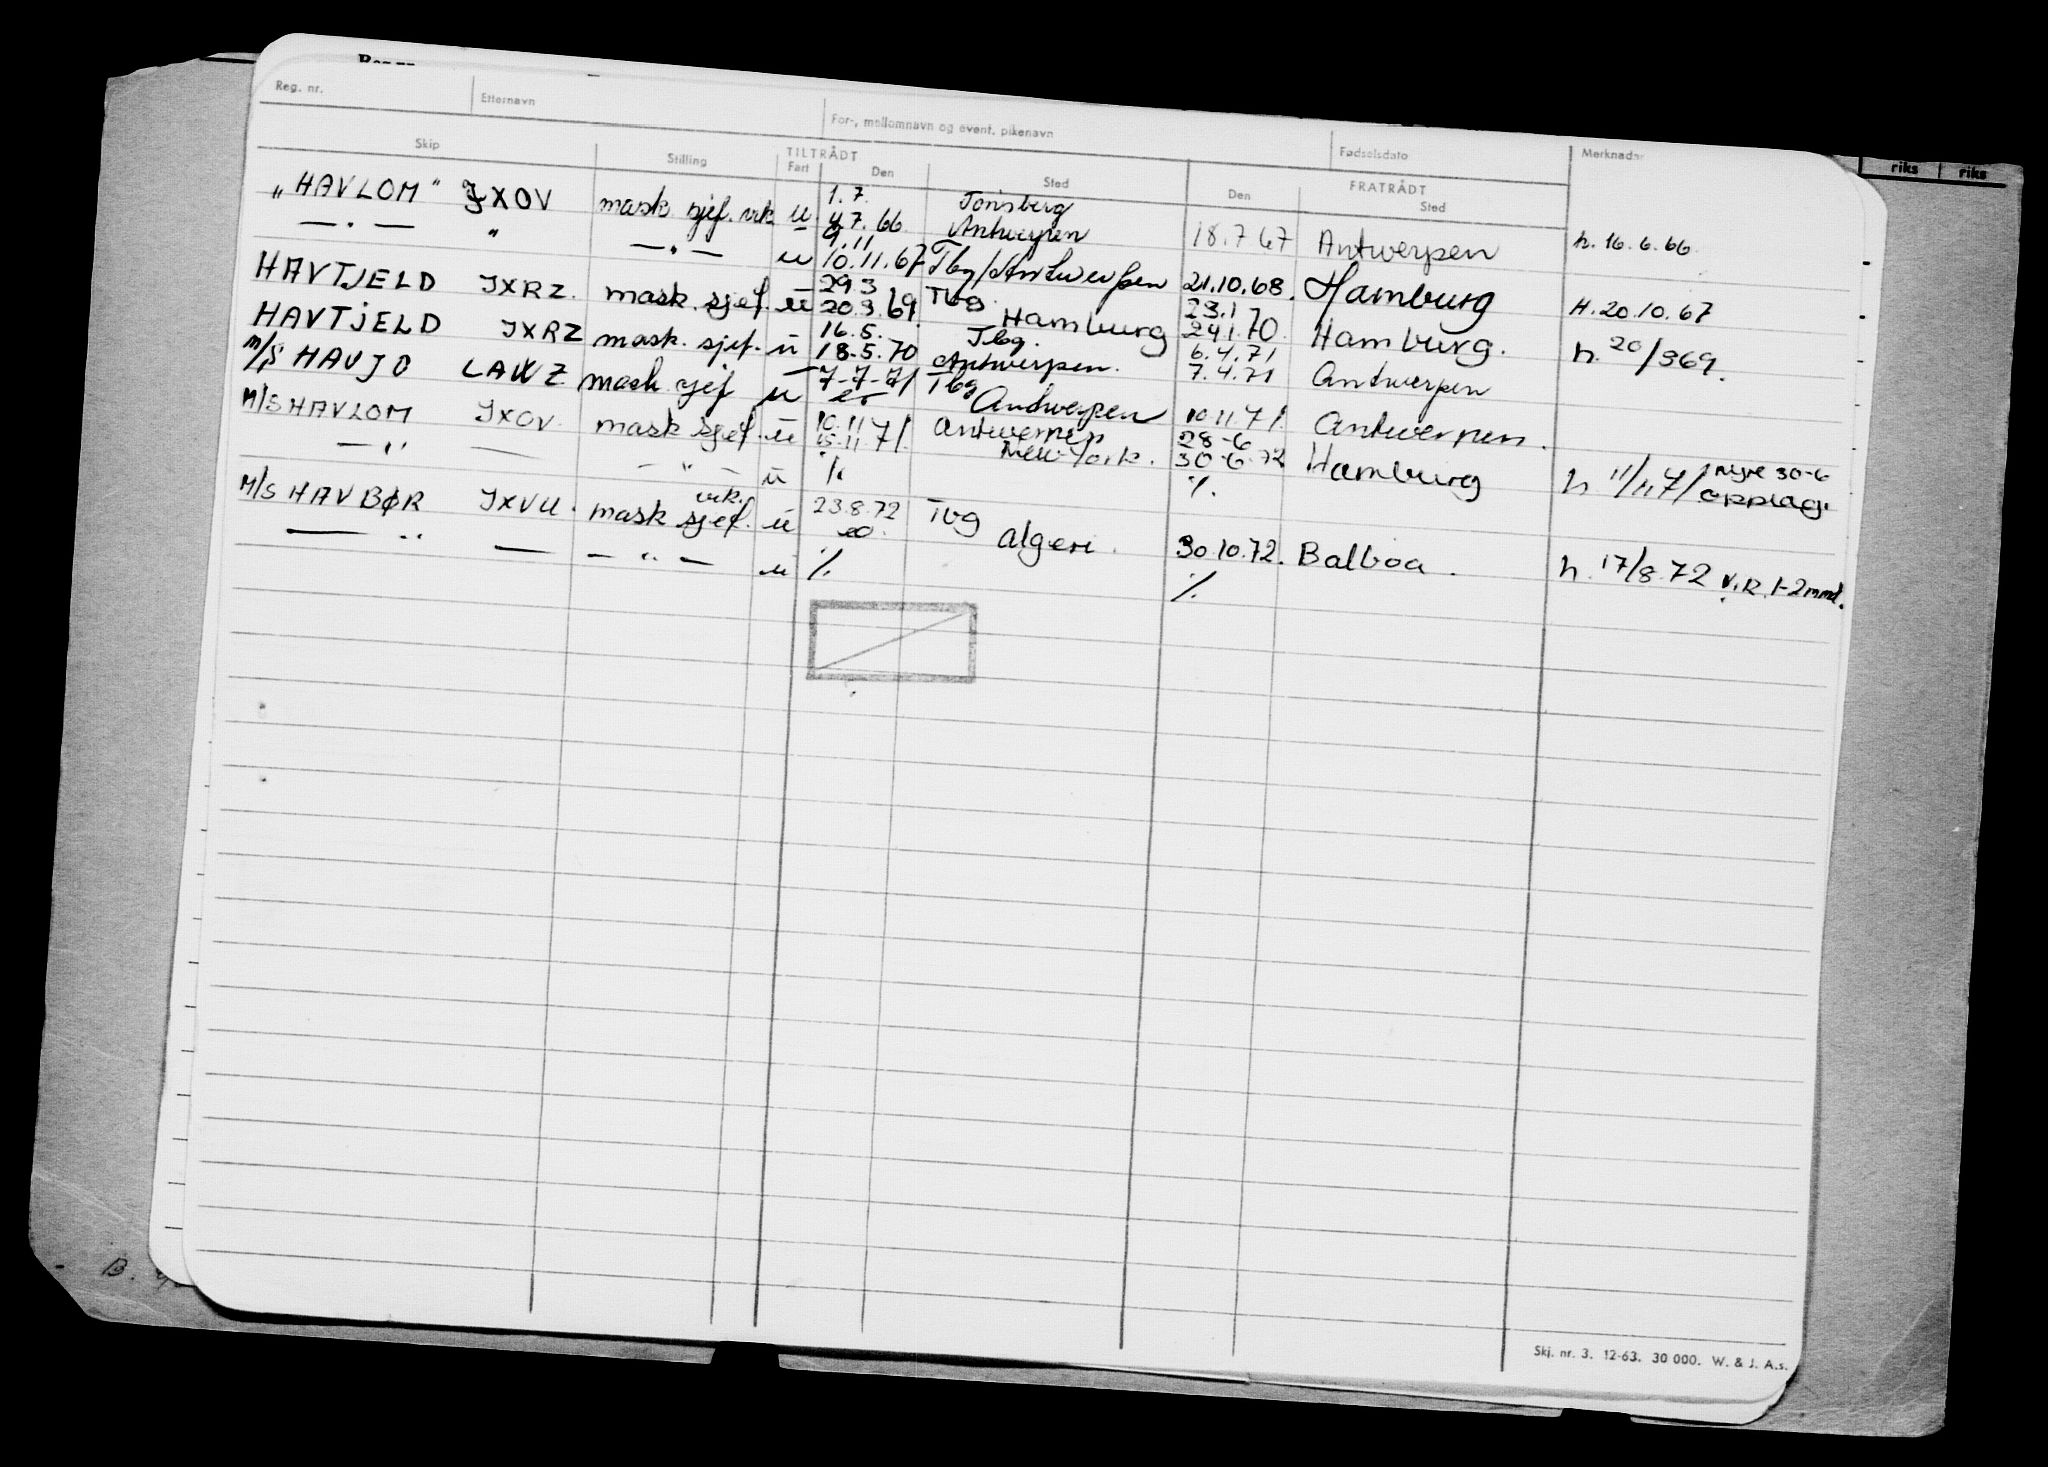 Reg. nr. Etternavn For-, mellomnavn og event. pikenavn Fødselsdato Merknader
riks riks
Skip Stilling TILTRÅDT FRATRÅDT
Fart Den Sted Den Sted
"HAVLOM" JXOV mask. sjef. vik u 1.7. Tønsberg
4.7.66 Antwerpen 18.7 67 Antwerpen h. 16.6.66
— " — " — " — u 9.11
10.11.67 Tbg/Antwerpen 21.10.68. Hamburg H. 20.10.67
HAVTJELD JXRZ. mask. sjef. u 29.3 Tbg.
20.3.69. Hamburg 23.1
24.1.70. Hamburg. h. 20/369.
HAVTJELD JXRZ mask. sjef. u 16.5. Tbg.
18.5.70 Antwerpen. 6.4.71
7.4.71 Antwerpen
M/S HAVJO LAWZ mask sjef u 7-7-71 Tbg
Antwerpen 10.11.71. Antwerpen.
M/S HAVLOM JXOV. mask sjef. u 10.11
15.11.71. Antwerpen
New York. 28-6
30-6.72 Hamburg h 11/11.7/ myre 30-6
opplag.
— " — — " — u % %.
M/S HAVBØR JXVU. mask sjef. vik. u 23.8.72 Tbg
Algeri. 30.10.72. Balboa. h. 17/8.72 v.R. 1-2 mnd.
— " — — " — u % %
B.
Skj. nr. 3. 12-63. 30 000. W. & J. A.s.